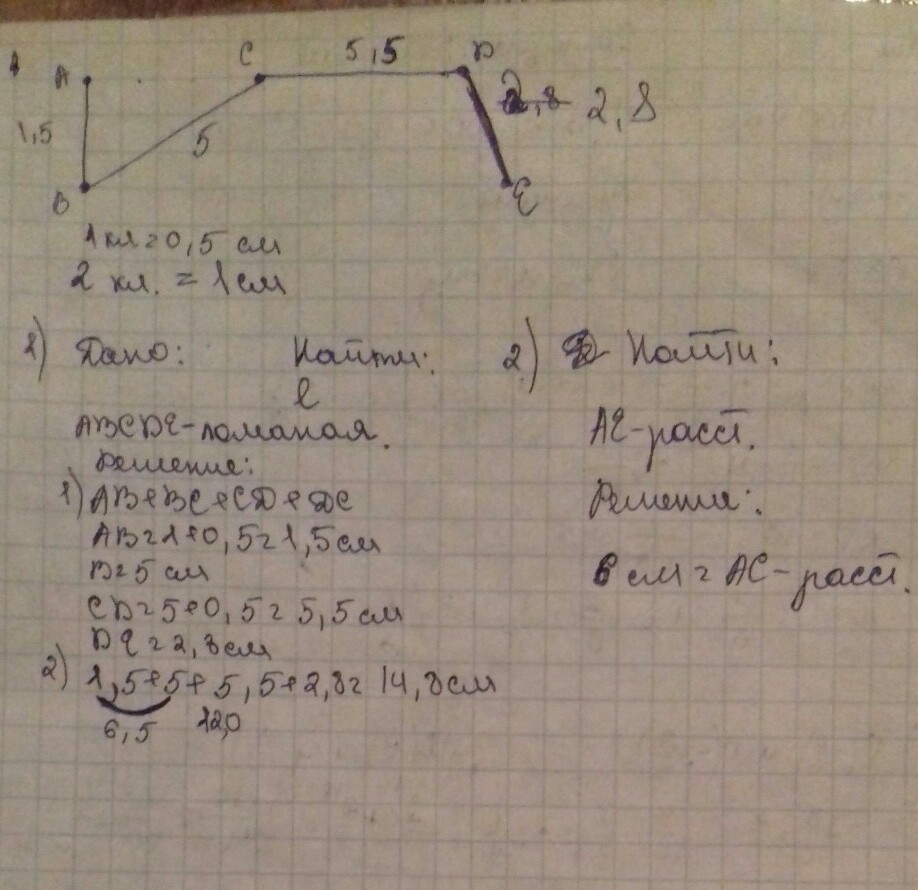 A
C
5,5
D
1,5
5
2,8 2,8
B
E
1 кл = 0,5 см
2 кл. = 1 см
1) Дано: Найти:
l
ABCDE - ломаная.
Решение:
1) AB + BC + CD + DC
AB = 1 + 0,5 = 1,5 см
B = 5 см
CD = 5 + 0,5 = 5,5 см
DE = 2,8 см
2) 1,5 + 5 + 5,5 + 2,8 = 14,8 см
6,5 12,0
2) Найти:
AE - расст.
Решение:
6 см = AC - расст.